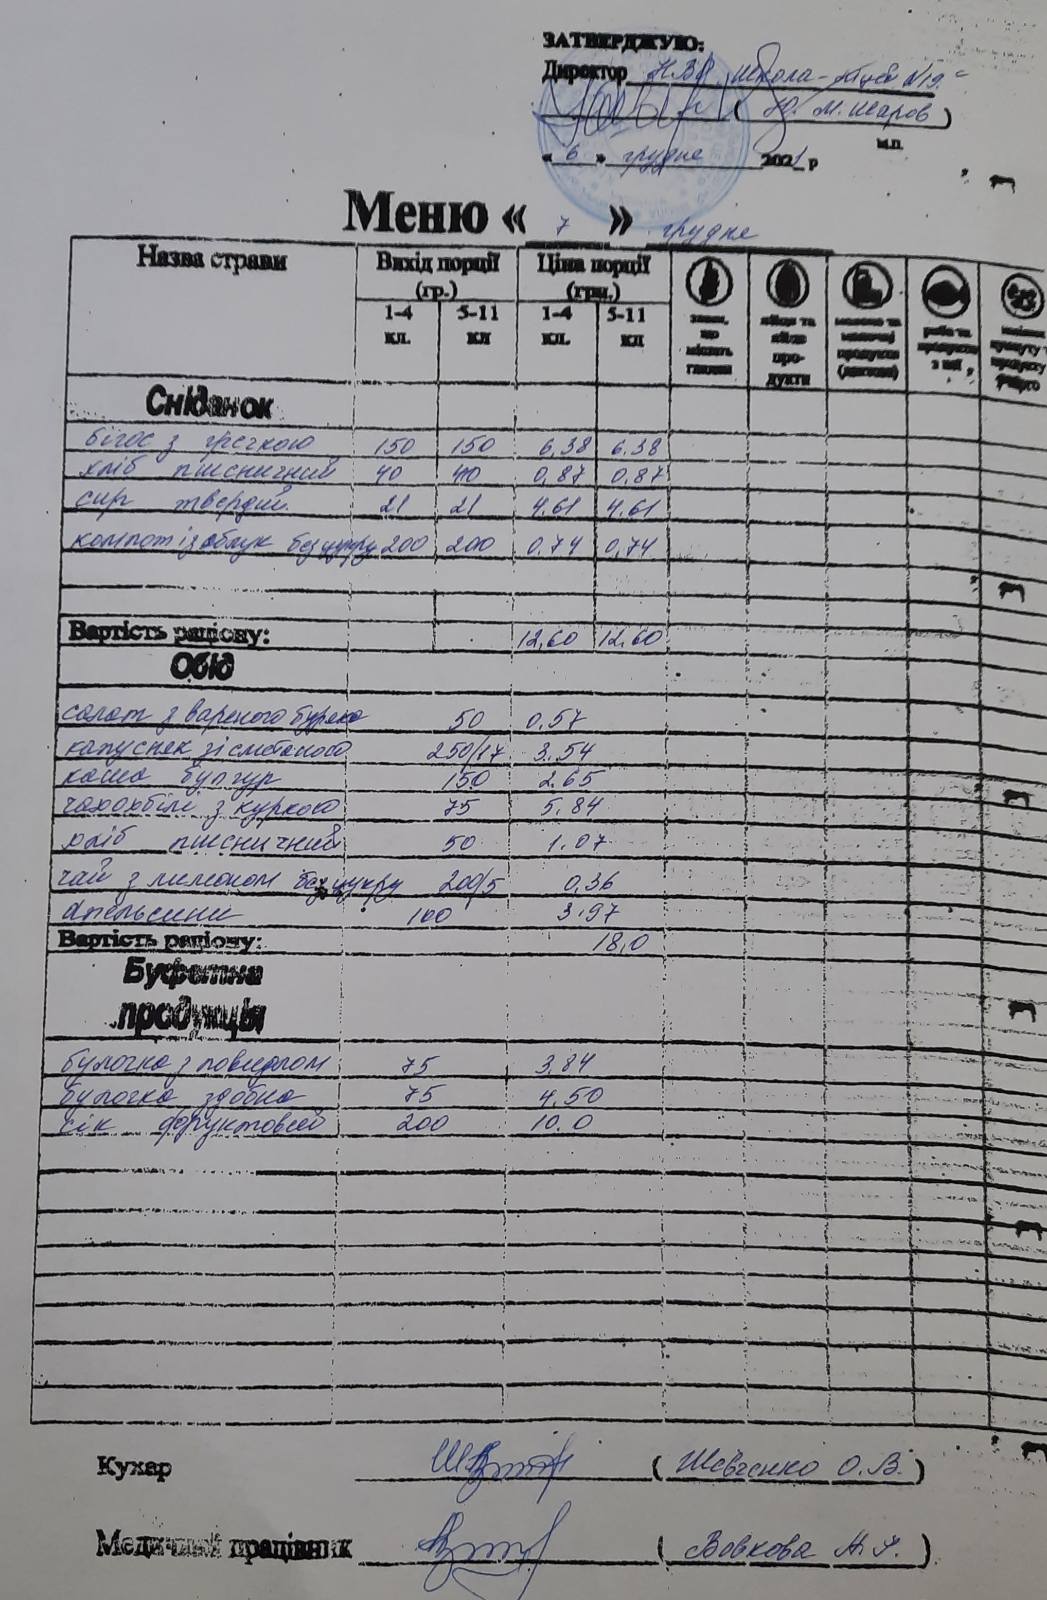 ЗАТВЕРДЖУЮ:
Директор НВК школа-ліцей №19"
( Ю. М. Шаров )
м.п.
« 6 » грудне 2021 р
Меню « 7 » грудне
Назва страви Вихід порції (гр.) Ціна порції (грн.)
1-4 кл. 5-11 кл 1-4 кл. 5-11 кл
злаки, що містять глютен
яйця та яйце продукти
молоко та молочні продукти (лактоза)
риба та продукти з неї
Сніданок
бігос з гречкою 150 150 6,38 6.38
хліб пшеничний 40 40 0,87 0.87
сир твердий 21 21 4.61 4.61
компот із яблук без цукру 200 200 0.74 0,74
Вартість раціону: 12,60 12.60
Обід
салат з вареного буряка 50 0.57
капусняк зі сметаною 250/17 3.54
каша булгур 150 2.65
чахохбілі з куркою 75 5.84
хліб пшеничний 50 1.07
чай з лимоном без цукру 200/5 0,36
апельсини 100 3.97
Вартість раціону: 18,0
Буфетна продукція
булочка з повидлом 75 3.84
булочка здобна 75 4.50
сік фруктовий 200 10.0
Кухар ( Шевченко О.В. )
Медичний працівник ( Вовкова Н.Г. )